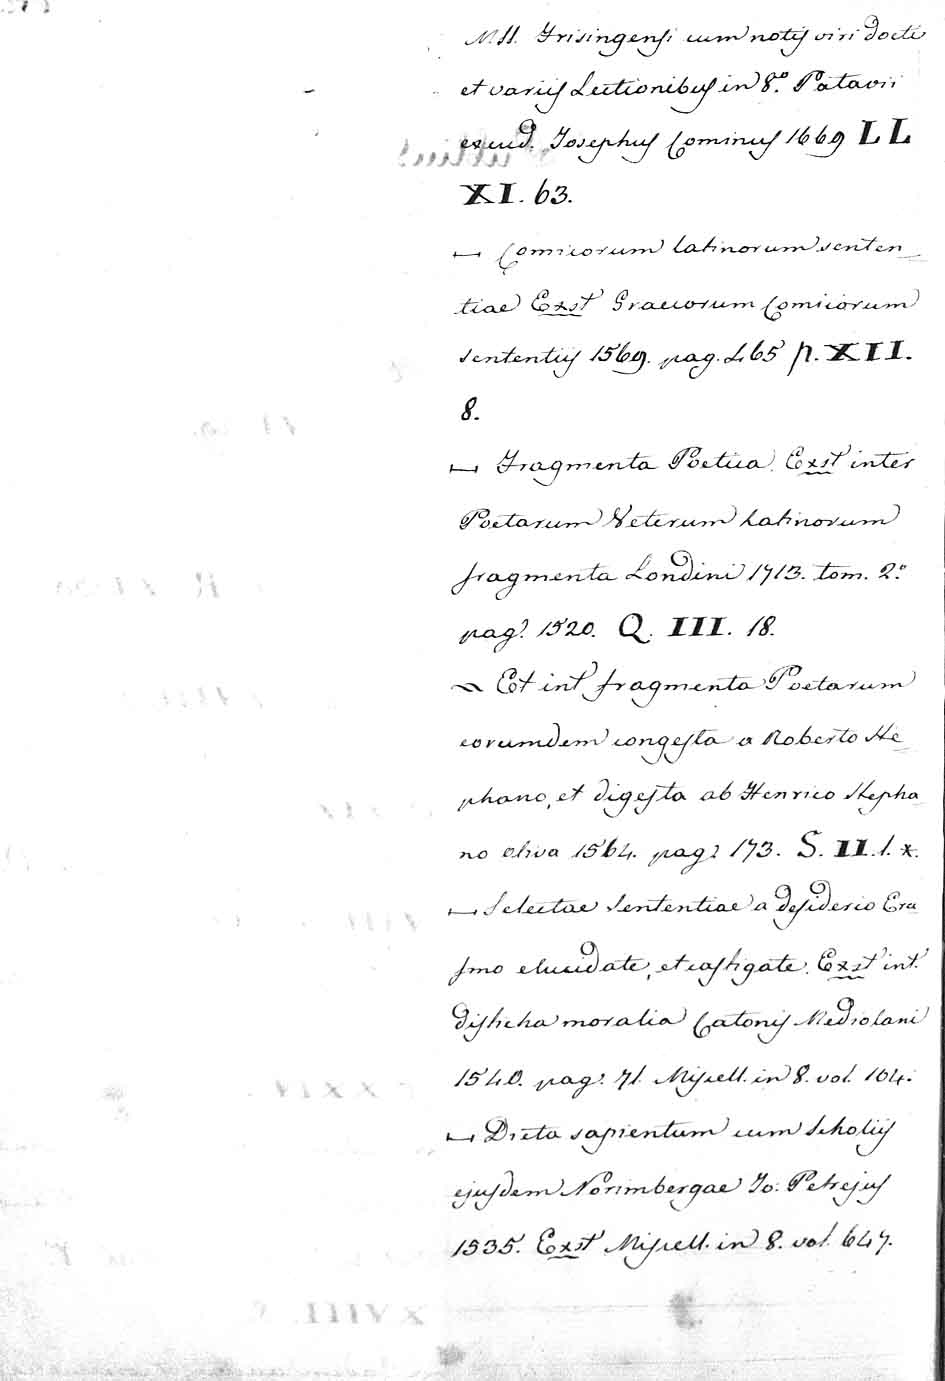 MSS. Frisingensi cum notis viri docti
et variis Lectionibus in 8.º Patavii
excud. Josephus Cominus 1669 LL
XI. 63.
⊢ Comicorum latinorum senten_
tiae Exst Graecorum Comicorum
sententiis 1569. pag. 465 p. XII.
8.
⊢ Fragmenta Poetica. Exst inter
Poetarum Veterum latinorum
fragmenta Londini 1713. tom. 2.º
pag. 1520. Q. III. 18.
~ Et int fragmenta Poetarum
eorumdem congesta a Roberto Ste_
phano, et digesta ab Henrico Stepha
no oliva 1564. pag. 173. S. II. 1. x.
⊢ Selectae Sententiae a desiderio Era
smo elucidate, et castigate. Exst int.
disticha moralia Catonis Mediolani
1540. pag. 71. Miscell. in 8. vol. 104.
⊢ Dicta sapientum cum Scholiis
ejusdem Norimbergae Jo: Petrejus
1535. Exst Miscell. in 8. vol. 647.